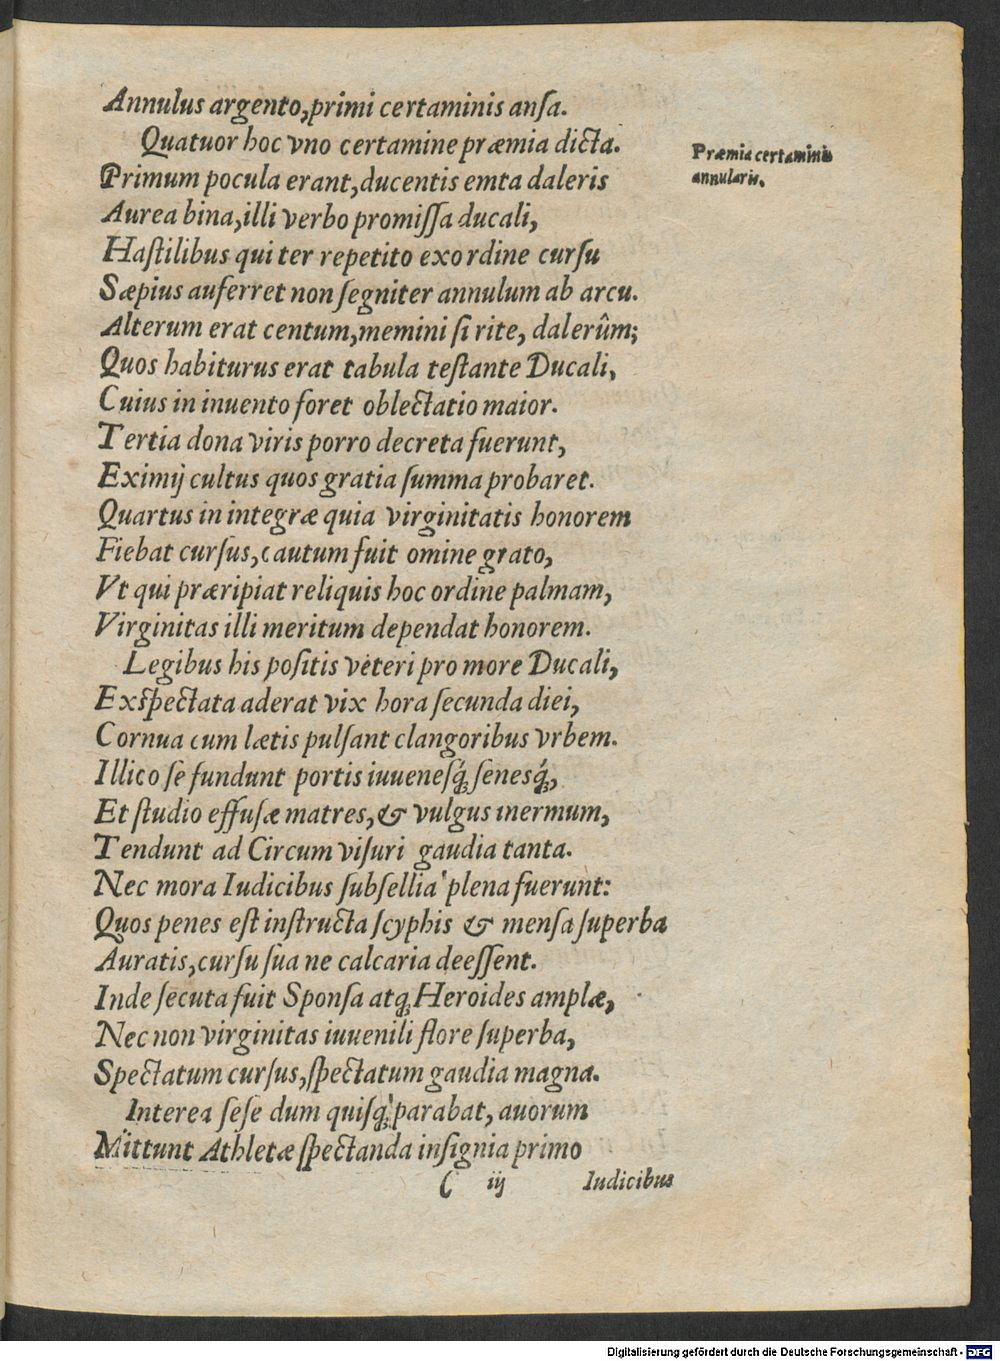 Annulus argento, primi certaminis ansa.
Quatuor hoc vno certamine præmia dicta.
Præmia certaminis
annularis.
Primum pocula erant, ducentis emta daleris
Aurea bina, illi verbo promiſſa ducali,
Haſtilibus qui ter repetito ex ordine curſu
Sæpius auferret non ſegniter annulum ab arcu.
Alterum erat centum, memini ſi rite, dalerûm;
Quos habiturus erat tabula teſtante Ducali,
Cuius in inuento foret oblectatio maior.
Tertia dona viris porro decreta fuerunt,
Eximij cultus quos gratia ſumma probaret.
Quartus in integræ quia virginitatis honorem
Fiebat curſus, cautum fuit omine grato,
Vt qui præripiat reliquis hoc ordine palmam,
Virginitas illi meritum dependat honorem.
Legibus his poſitis veteri pro more Ducali,
Exſpectata aderat vix hora ſecunda diei,
Cornua cum lætis pulſant clangoribus vrbem.
Illico ſe fundunt portis iuueneſq́; ſenesq́;,
Et ſtudio effuſæ matres, & vulgus inermum,
Tendunt ad Circum viſuri gaudia tanta.
Nec mora Iudicibus ſubſellia plena fuerunt:
Quos penes eſt inſtructa ſcyphis & menſa ſuperba
Auratis, curſu ſua ne calcaria deeſſent.
Inde ſecuta fuit Sponſa atq; Heroides amplæ,
Nec non virginitas iuuenili flore ſuperba,
Spectatum curſus, ſpectatum gaudia magna.
Interea ſeſe dum quiſq; parabat, auorum
Mittunt Athletæ ſpectanda inſignia primo
C iij
Iudicibus
Digitalisierung gefördert durch die Deutsche Forschungsgemeinschaft - DFG